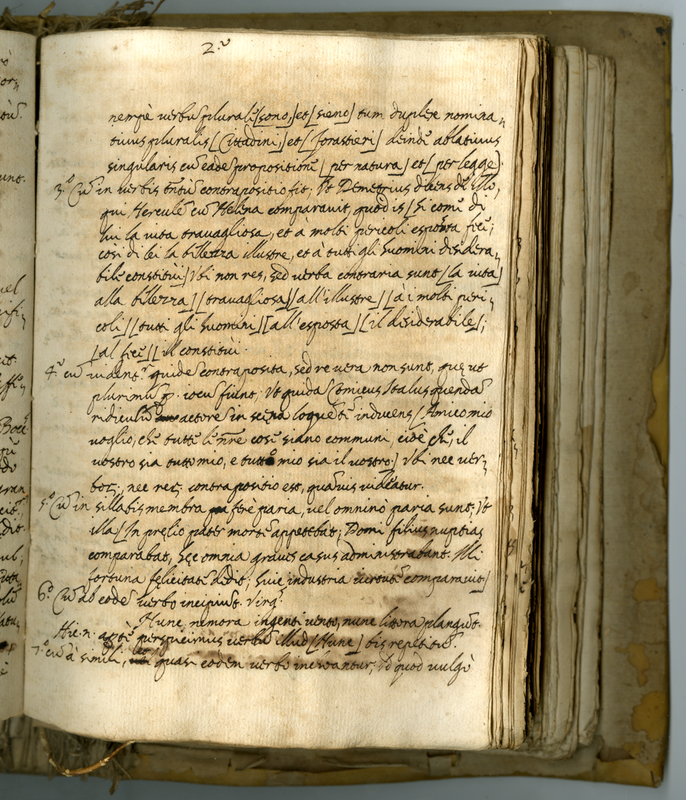 2.º
nempè verbũ plurale [sono,] et [sieno] tum duplex nomina-
tivus pluralis [Cittadini,] et [forastieri] deinde ablativus
singularis cũ eadẽ propositione [per natura] et [per legge].
3.º Cũ in verbis tantũ contrapositio fit, Ut Demetrius docens de illo,
qui Herculẽ cũ Helena comparavit, quod is [si come di
lui la vita travagliosa, et a molti pericoli esposta fece;
cosi di lei la bellezza illustre, et à tutti gli huomini disidera-
bile constituì] Ubi non res, sed verba contraria sunt [la vita]
alla bellezza] [travagliosa] [all'illustre] [à i molti peri-
coli] [tutti gli huomini] [all'esposta] [il disiderabile];
[al fece] [il constituì.
4.º cũ videntr quidẽ contraposita, sed re vera non sunt, que ut
plurimũ g. iocũ fiunt. Ut quidã Comicus Italus quendã
ridiculũ actorẽ in scena loquentẽ inducens [Amico mio
voglio, che tutte le nre cose siano communi, cioè che; il
vostro sia tutto mio, e tutto mio sia il vostro.] Ubi nec ver-
bot; nec ret; contrapositio est, quamvis videatur.
5.º Cũ in sillabis membra ferè paria, vel omninò paria sunt; Ut
illa [In prelio pater mortẽ appettebat; Domi filius nuptias
comparabat, hec omnia graves casus administrabant. Illi
fortuna felicitatẽ dedit; huic industria virtutẽ comparavit]
6.º Cũ ab eodẽ verbo incipiunt. Virg.
Nunc nemora ingenti vento, nunc litora plangũt.
Hic n. aptè perspicimus verbũ illud [Nunc] bis repetitũ.
7.º cũ à simili, quasi eodem verbo inchoantur, Id quod vulgò